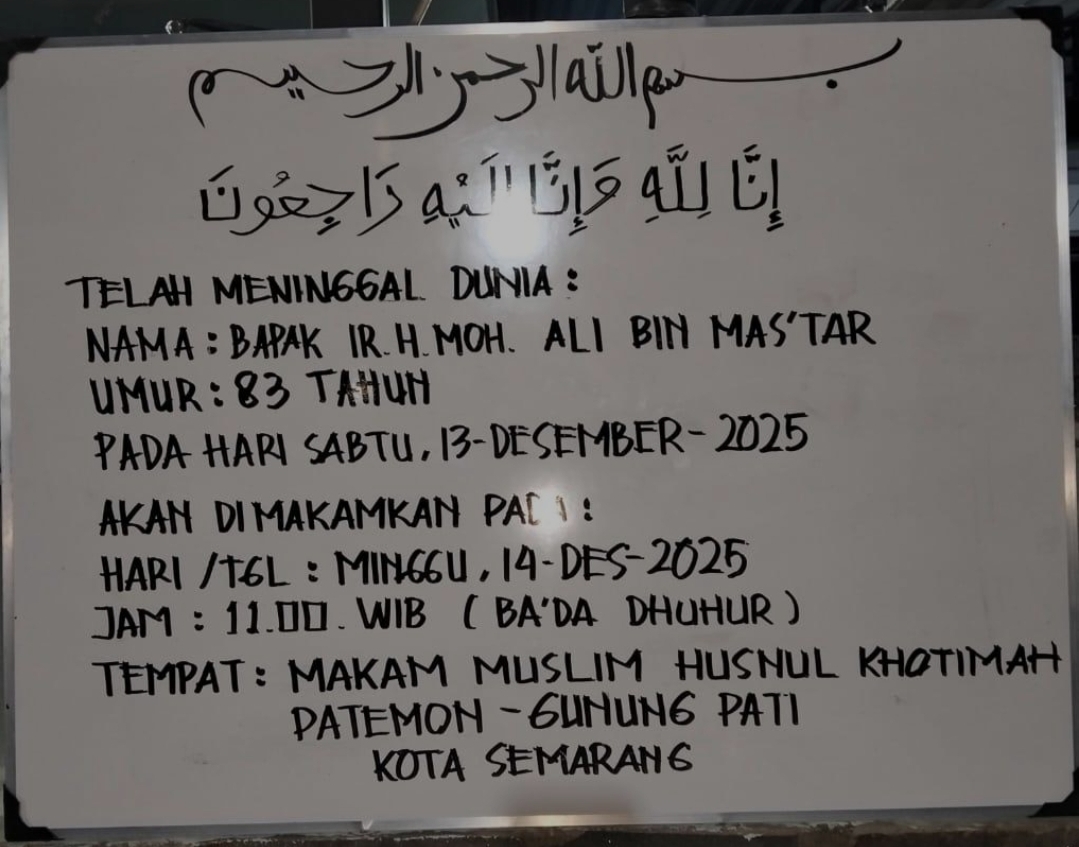 بسم الله الرحمن الرحيم
إِنَّا لِلَّهِ وَإِنَّا إِلَيْهِ رَاجِعُونَ
TELAH MENINGGAL DUNIA :
NAMA : BAPAK IR. H. MOH. ALI BIN MAS'TAR
UMUR : 83 TAHUN
PADA HARI SABTU, 13-DESEMBER-2025
AKAN DIMAKAMKAN PADA :
HARI /TGL : MINGGU, 14-DES-2025
JAM : 11.00. WIB ( BA'DA DHUHUR )
TEMPAT : MAKAM MUSLIM HUSNUL KHOTIMAH
PATEMON - GUNUNG PATI
KOTA SEMARANG